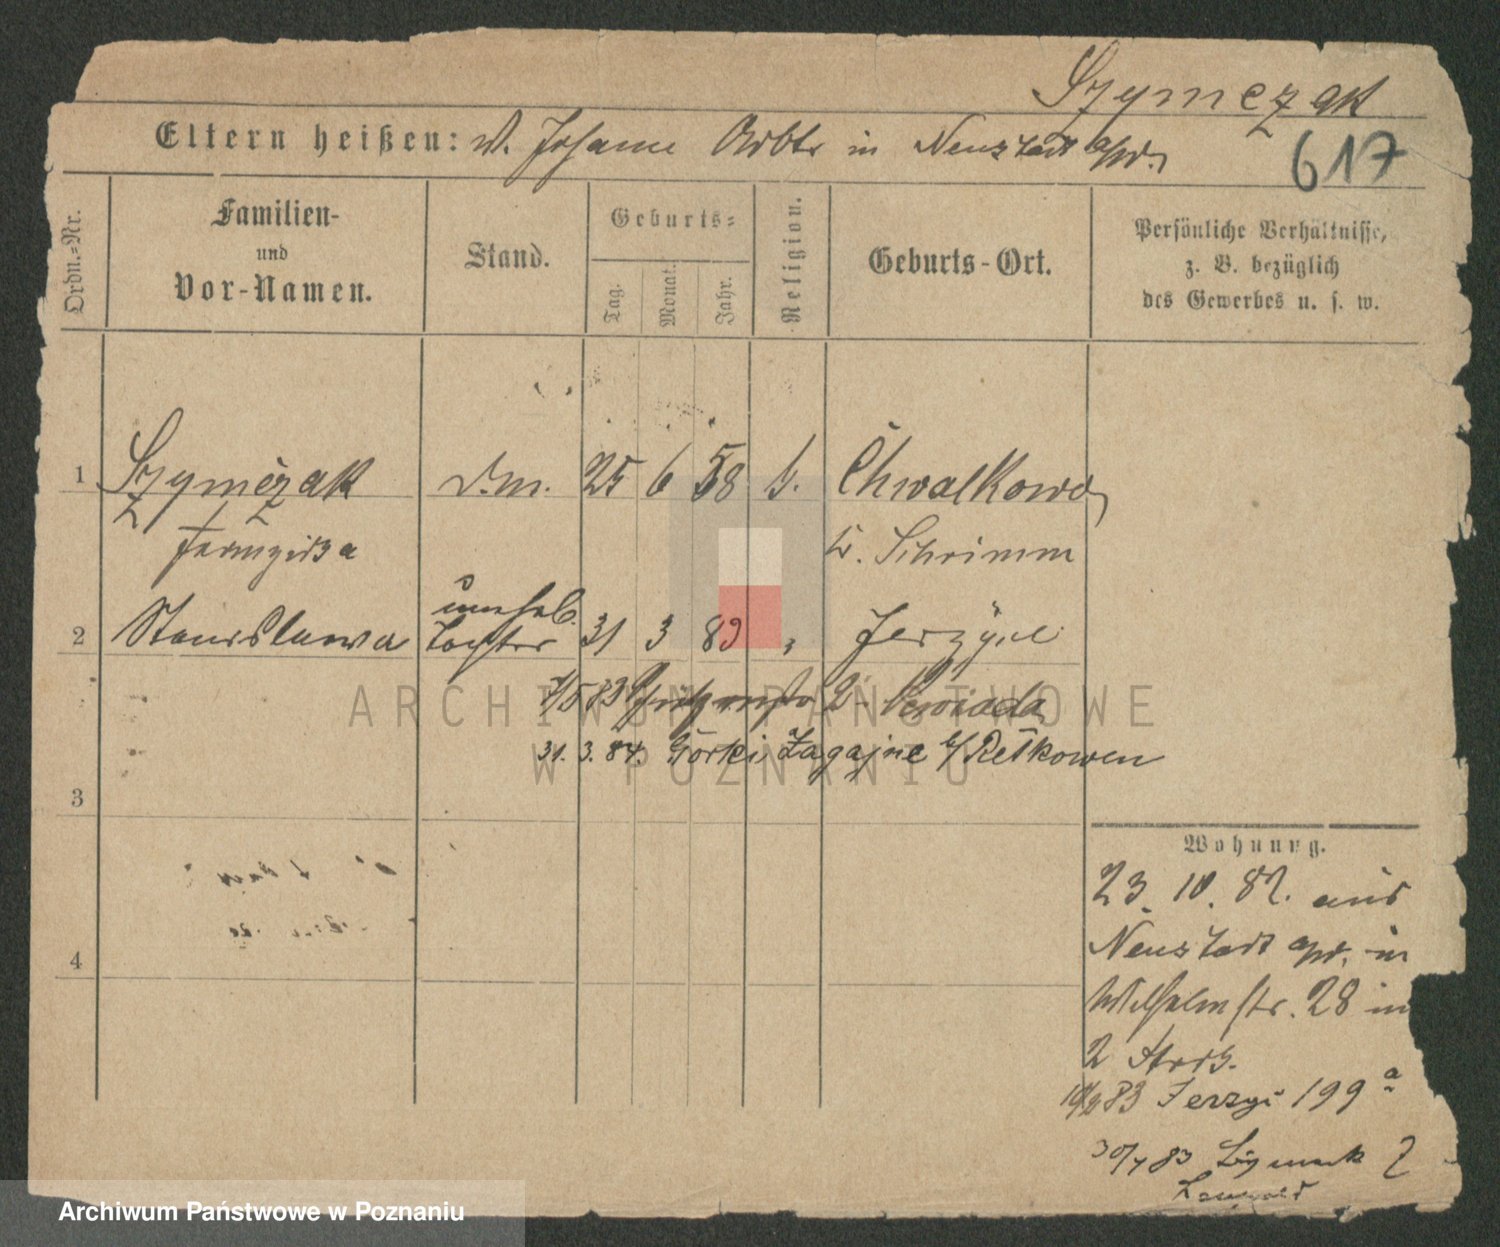 Szymczak
Eltern heißen: W. Johann in Neustadt a/W.
617
Ordn.=Nr.
Familien-
und
Vor-Namen.
Stand.
Geburts=
Tag.
Monat.
Jahr.
Religion.
Geburts-Ort.
Persönliche Verhältnisse,
z. B. bezüglich
des Gewerbes u. s. w.
1 Szymczak d.m. 25 6 58 k. Chwalkowo
Franziska K. Schrimm
unehel.
2 Stanislawa Tochter 31 3 83 " Jerzyce
7/5 83
31. 3. 84. Górki Zagajne b/
3
4
Wohnung.
23. 10. 82. aus
Neustadt a/W. in
Wilhelmstr. 28 in
2
83 Jerzyc 199 a
30/4 83
ARCHIWUM PAŃSTWOWE
W POZNANIU
Archiwum Państwowe w Poznaniu